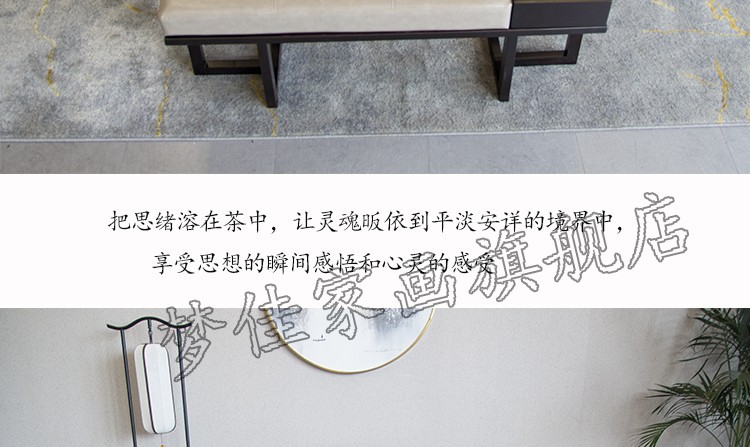 把思绪溶在茶中，让灵魂皈依到平淡安详的境界中，
享受思想的瞬间感悟和心灵的感受
梦佳家画旗舰店